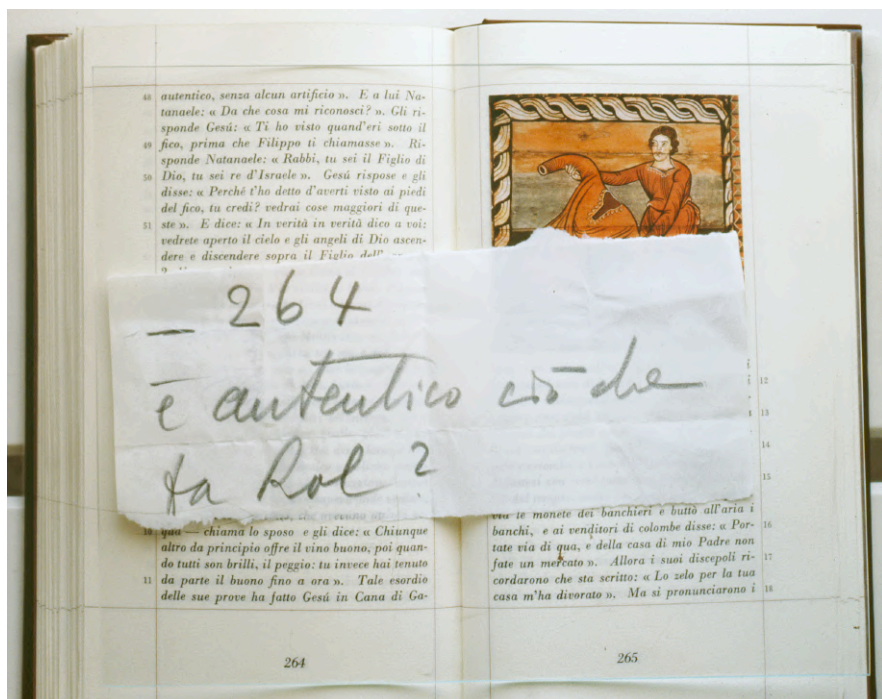 48 autentico, senza alcun artificio ». E a lui Na-
tanaele: « Da che cosa mi riconosci? ». Gli ri-
sponde Gesú: « Ti ho visto quand'eri sotto il
49 fico, prima che Filippo ti chiamasse ». Ri-
sponde Natanaele: « Rabbi, tu sei il Figlio di
50 Dio, tu sei re d'Israele ». Gesú rispose e gli
disse: « Perché t'ho detto d'averti visto ai piedi
del fico, tu credi? vedrai cose maggiori di que-
51 ste ». E dice: « In verità in verità dico a voi:
vedrete aperto il cielo e gli angeli di Dio ascen-
dere e discendere sopra il Figlio
_ 264
è autentico ciò che
fa Rol?
10 qua — chiama lo sposo e gli dice: « Chiunque
altro da principio offre il vino buono, poi quan-
do tutti son brilli, il peggio: tu invece hai tenuto
11 da parte il buono fino a ora ». Tale esordio
delle sue prove ha fatto Gesú in Cana di Ga-
264
12
13
14
15
via le monete dei banchieri e buttò all'aria i
banchi, e ai venditori di colombe disse: « Por- 16
tate via di qua, e della casa di mio Padre non
fate un mercato ». Allora i suoi discepoli ri- 17
cordarono che sta scritto: « Lo zelo per la tua
casa m'ha divorato ». Ma si pronunciarono i 18
265